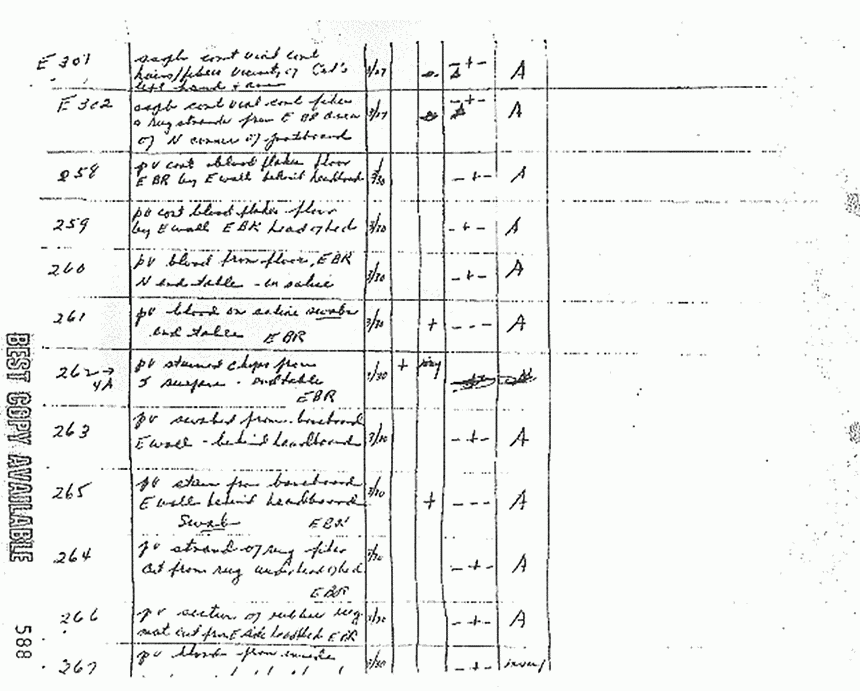 E 301 cont vial cont
hairs/fibers vicinity of Col's 3/27 - + - A
left hand +
E 302 cont vial cont fiber
rug strands from E BR area 3/27 - + - A
of N corner of footboard
258 pv cont blood flakes floor
E BR by E wall behind headboard 3/30 - + - A
259 pv cont blood flakes floor
by E wall EBR head of bed 3/30 - + - A
260 pv blood from floor, EBR
N end table - on saline 3/30 - + - A
261 pv blood on saline swabs 3/30 + - - - A
end table EBR
262 → pv stained chips from + 
4A surface - end table 3/30
EBR
263 pv swabbed from baseboard
E wall - behind headboard 3/30 - + - A
265 pv stain from baseboard 3/30
E wall behind headboard + - - - A
Swab EBR
264 pv strand of rug fiber 3/30
cut from rug under head of bed - + - A
EBR
266 pv section of rubber rug 3/30 - + - A
mat cut from E side EBR
267 pv blood from 3/30 - + -
BEST COPY AVAILABLE
588